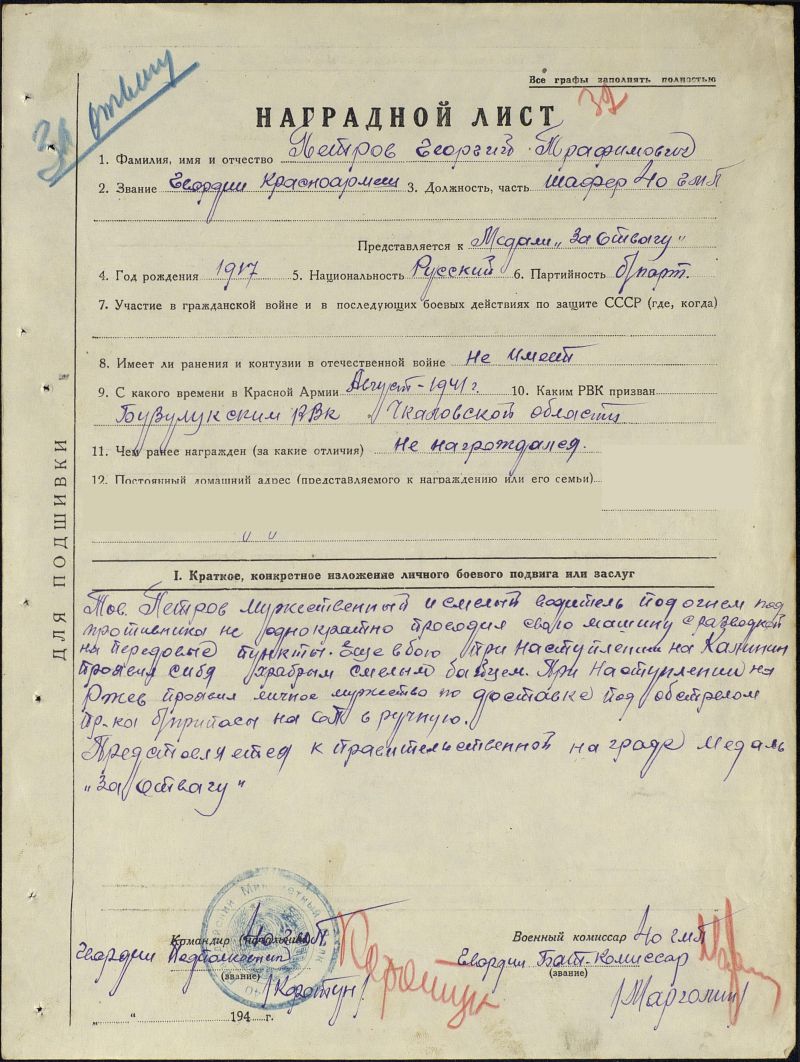 За отвагу
Все графы заполнять полностью
39
НАГРАДНОЙ ЛИСТ
1. Фамилия, имя и отчество Петров Георгий Трафимович
2. Звание Гвардии Красноармеец 3. Должность, часть шафер 40 ГМП
Представляется к Медали „За Отвагу"
4. Год рождения 1917 5. Национальность Русский 6. Партийность б/парт.
7. Участие в гражданской войне и в последующих боевых действиях по защите СССР (где, когда)
8. Имеет ли ранения и контузии в отечественной войне не имеет
9. С какого времени в Красной Армии Август-1941 г. 10. Каким РВК призван
Бузулукским РВК Чкаловской области
11. Чем ранее награжден (за какие отличия) Не награждался.
12. Постоянный домашний адрес (представляемого к награждению или его семьи)
ДЛЯ ПОДШИВКИ
I. Краткое, конкретное изложение личного боевого подвига или заслуг
Тов. Петров мужественный и смелый водитель под огнем
противника не однократно проводил свою машину с разведкой
на передовые пункты. Еще в бою при наступлении на Калинин
проявил себя храбрым смелым бойцом. При наступлении на
Ржев проявил личное мужество по доставке под обстрелом
пр-ка б/припасы на в ручную.
Представляется к правительственной награде медаль
„За Отвагу"
Командир (начальник) 40 ГМП
Гвардии Подполковник
(звание)
/Коротун/
Коротун
„ " 194 г.
Военный комиссар 40 ГМП
Гвардии Бат-Комиссар
(звание)
/Марголин/